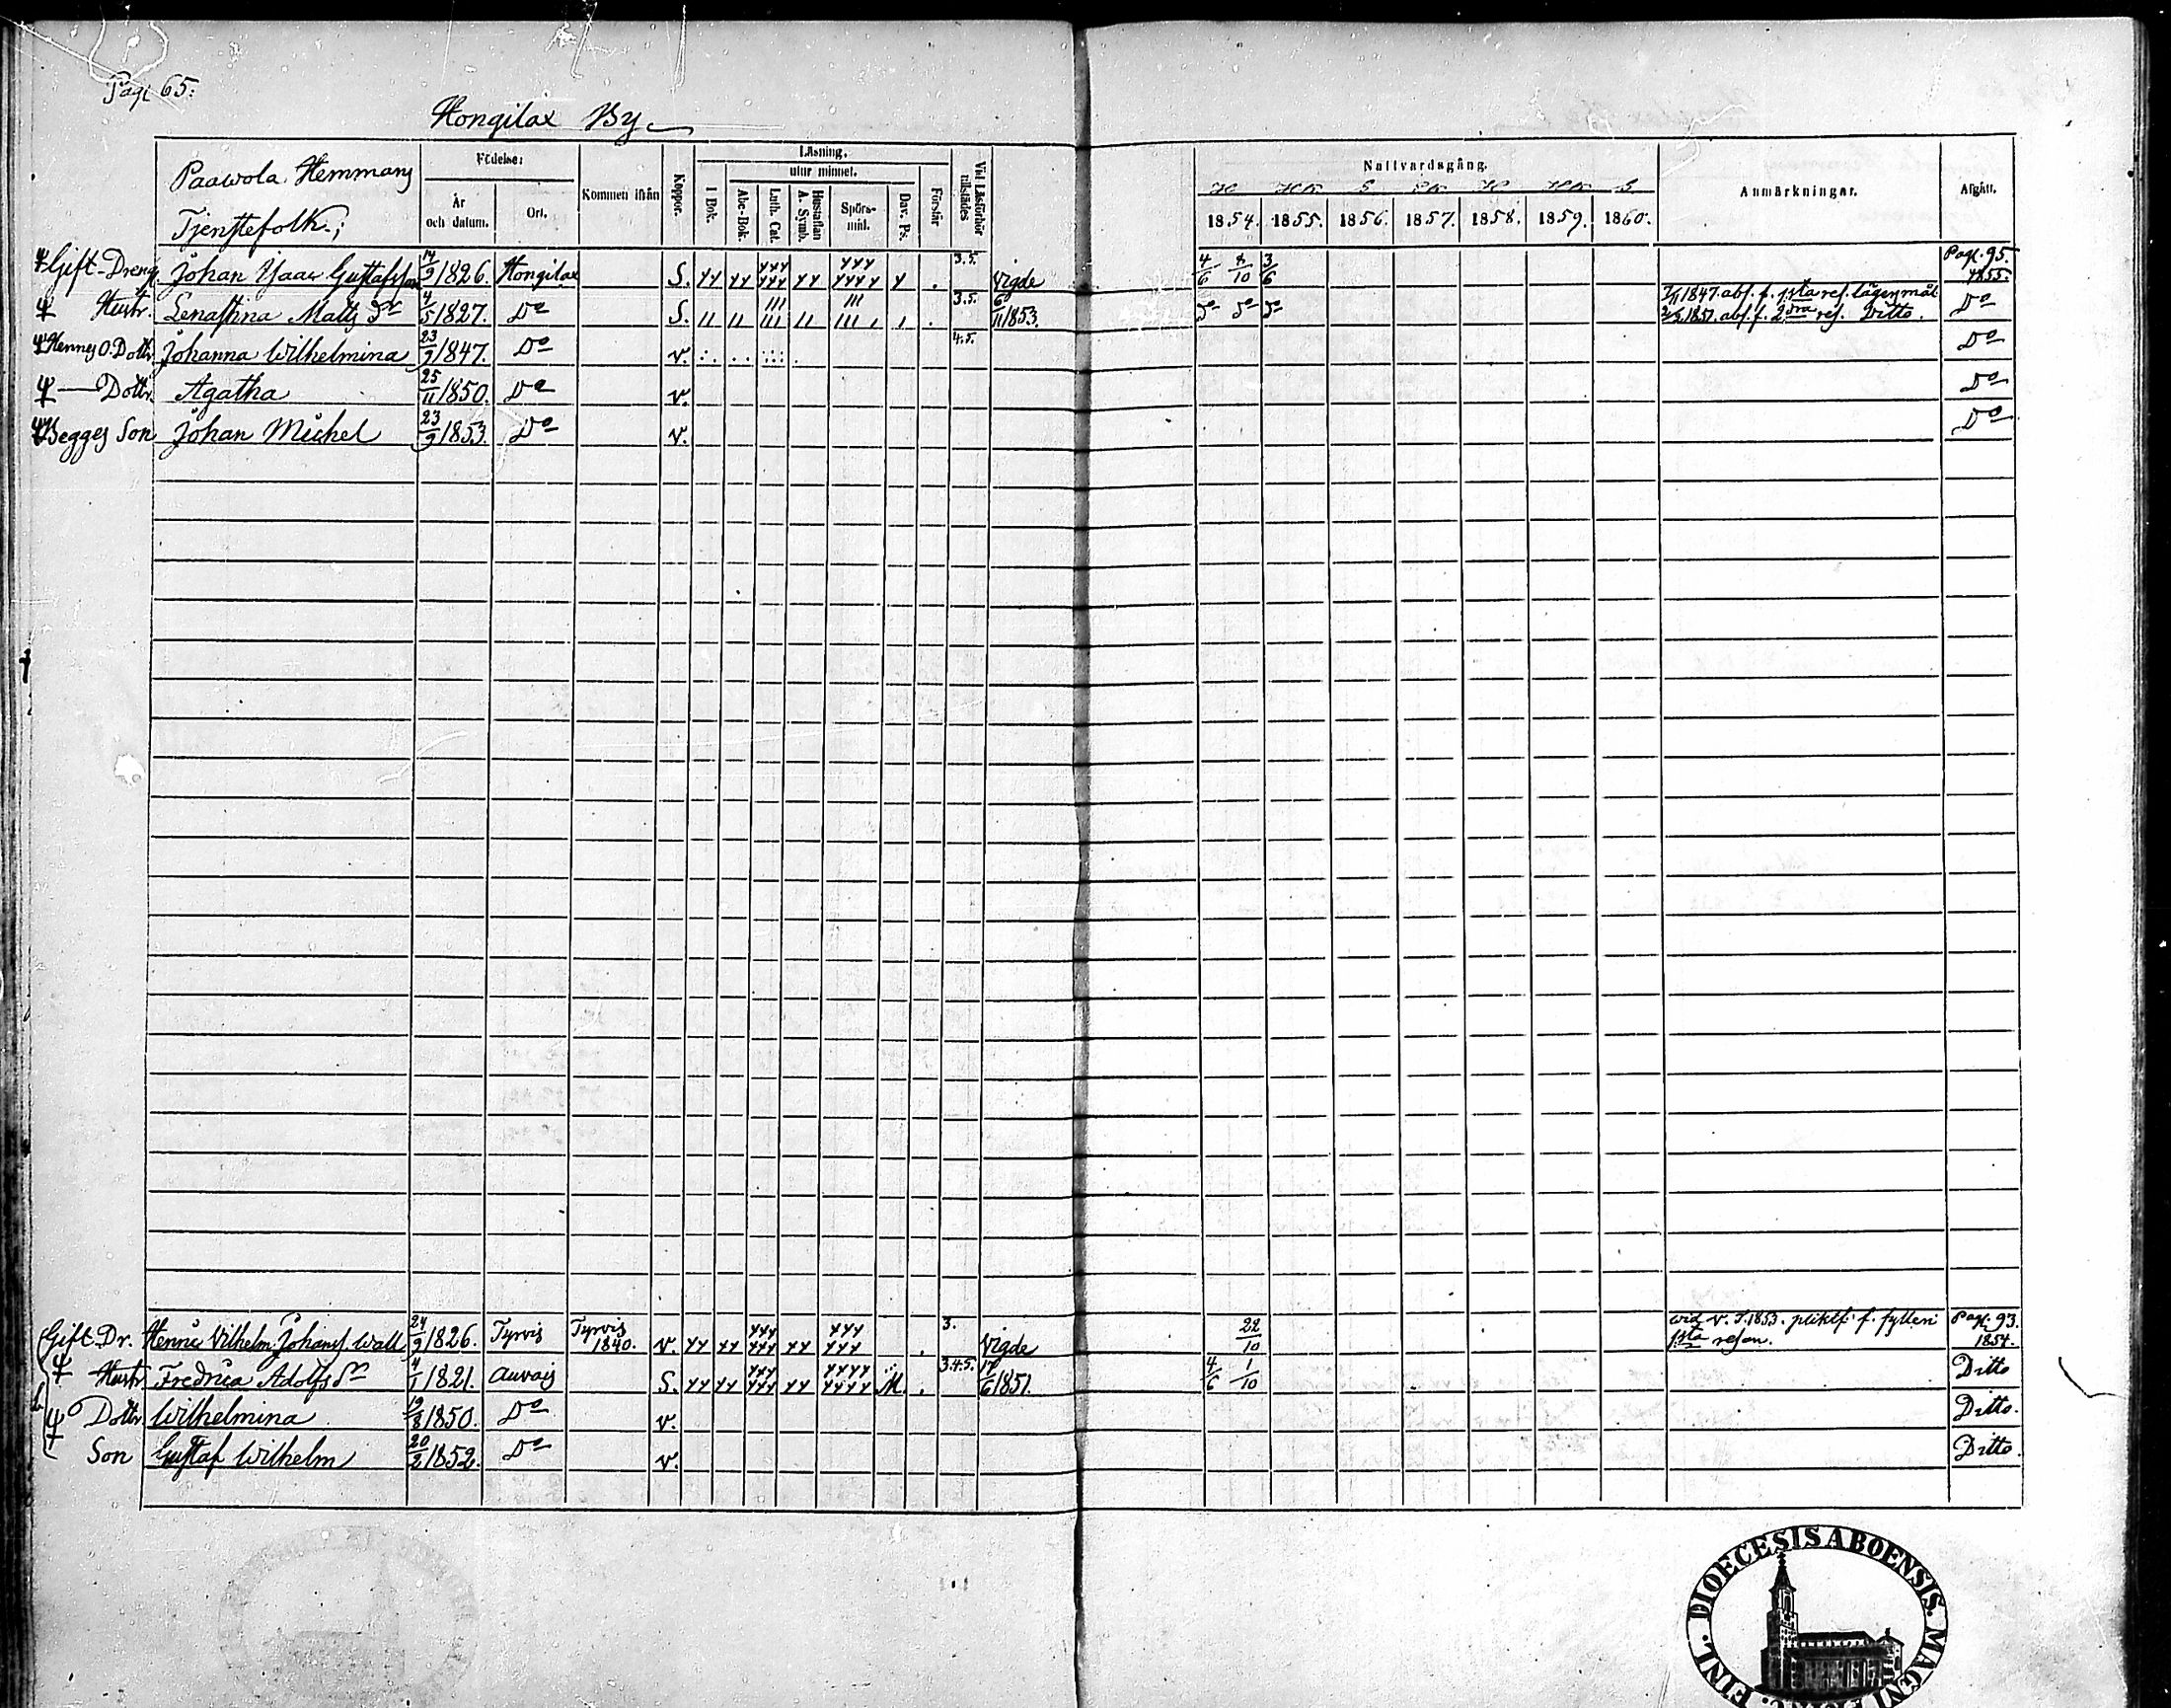 Pag. 65.
Hongilax By
Paawola Hemmans
Tjenstefolk;
Födelse:
År och datum.
Ort.
Kommen ifrån
Koppor.
Läsning.
I Bok.
utur minnet.
Abc-Bok.
Luth. Cat.
Hustaflan A. Symb.
Spörs-mål.
Dav. Ps.
Förstår
Vid Läsförhör tillstädes
Nattvardsgång.
1854. 1855. 1856. 1857. 1858. 1859. 1860.
Anmärkningar.
Afgått.
Gift-Dreng. Johan Isaac Gustafsson 14/9 1826. Hongilax S. 3.5. Vigde 4/6 8/10 3/6 Pag. 95. 1855.
Hustr. Lenastina Matts dr 4/5 1827. Do S. 3.5. 6/11 1853. Do Do Do 7/11 1847. abs. f. 1sta res. lägersmål
1851. abs. f. 2dra res. Ditto. Do
Hennes O. Dottr. Johanna Wilhelmina 23/9 1847. Do v. 4.5. Do
Dottr. Agatha 25/11 1850. Do v. Do
Begges Son Johan Michel 23/9 1853. Do v. Do
Gift-Dr. Henric Vilhelm Johanss. Wall 24/9 1826. Tyrvis Tyrvis 1840. v. 3. Vigde 22/10 wid v. T. 1853. pliktf. f. fylleri
1sta resan. Pag. 93. 1854.
Hustr. Fredrica Adolfs dr 4/1 1821. Auvais S. M. 3.4.5. 17/6 1851. 4/6 1/10 Ditto
Dottr. Wilhelmina 19/8 1850. Do v. Ditto.
Son Gustaf Wilhelm 20/2 1852. Do v. Ditto.
FINL. DIOECESIS ABOENSIS. MAGNI